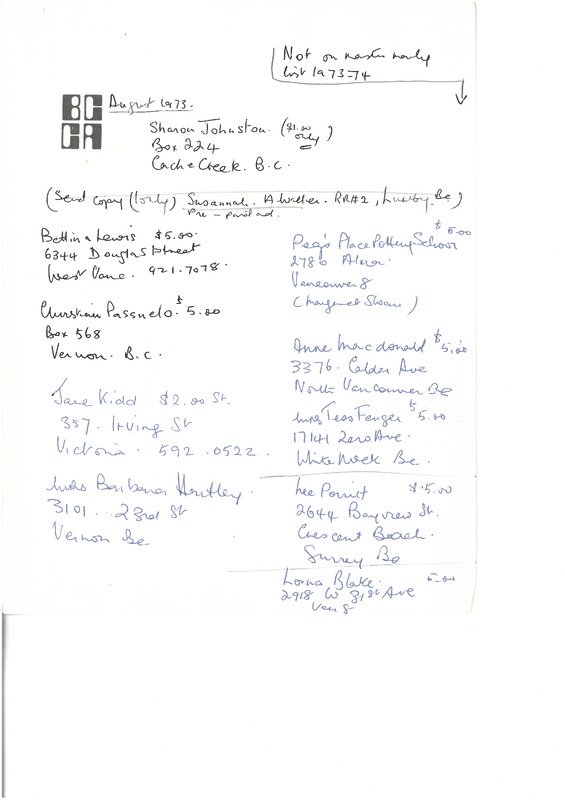 Not on master mailing
list 1973-74
BC
GA
August 1973.
Sharon Johnston. ($1.00 only)
Box 224
Cache Creek. B.C.
(Send copy (1 only) Susannah. A RR#2, Lumby. Bc)
Pre-paid
Bettina Lewis $5.00.
6344 Douglas Street
West Vanc. 921.7078.
Christian Passuelo. $5.00
Box 568
Vernon. B.C.
Jane Kidd $2.00 St.
357. Irving St
Victoria. 592.0522.
Mrs Barbara Hartley.
3101.. 23rd St
Vernon Bc
Peg's Place Pottery School $5.00
2780 Alma.
Vancouver 8
(Margaret )
Anne Macdonald $5.00
3376. Calder Ave
North Vancouver Bc
Mrs Tess Fenger $5.00
17141 Zero Ave.
White Rock Bc.
Lee $5.00
2644 Bayview St.
Crescent Beach.
Surrey Bc
Lorna Blake. 5.00
2918 W 31st Ave
Van 8